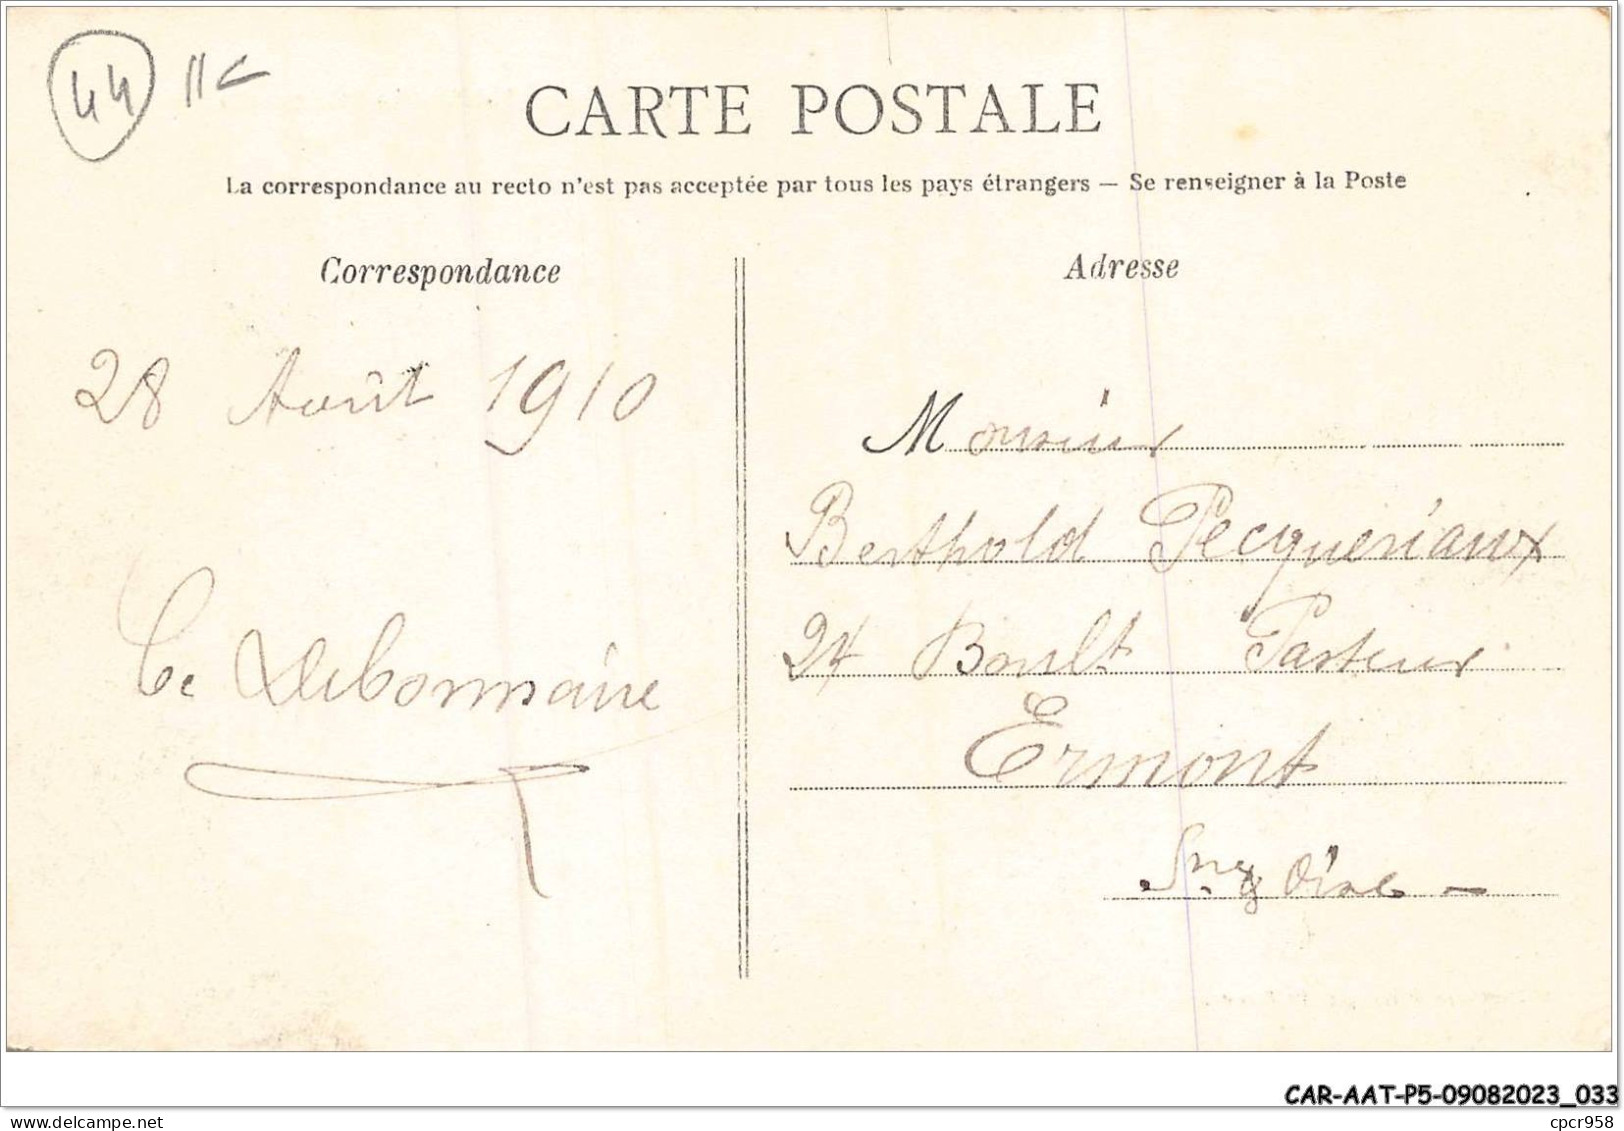 44 11€
CARTE POSTALE
La correspondance au recto n'est pas acceptée par tous les pays étrangers — Se renseigner à la Poste
Correspondance
28 Août 1910
Debonnaire
Adresse
Monsieur
Berthold Pecqueriaux
24 Boult Pasteur
Ermont
Sne & Oise —
CAR-AAT-P5-09082023_033
cpcr958